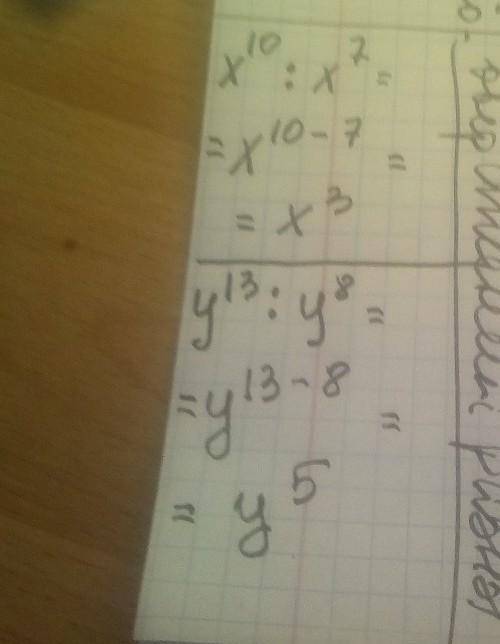 x¹⁰ : x⁷ =
= x¹⁰⁻⁷ =
= x³
y¹³ : y⁸ =
= y¹³⁻⁸ =
= y⁵